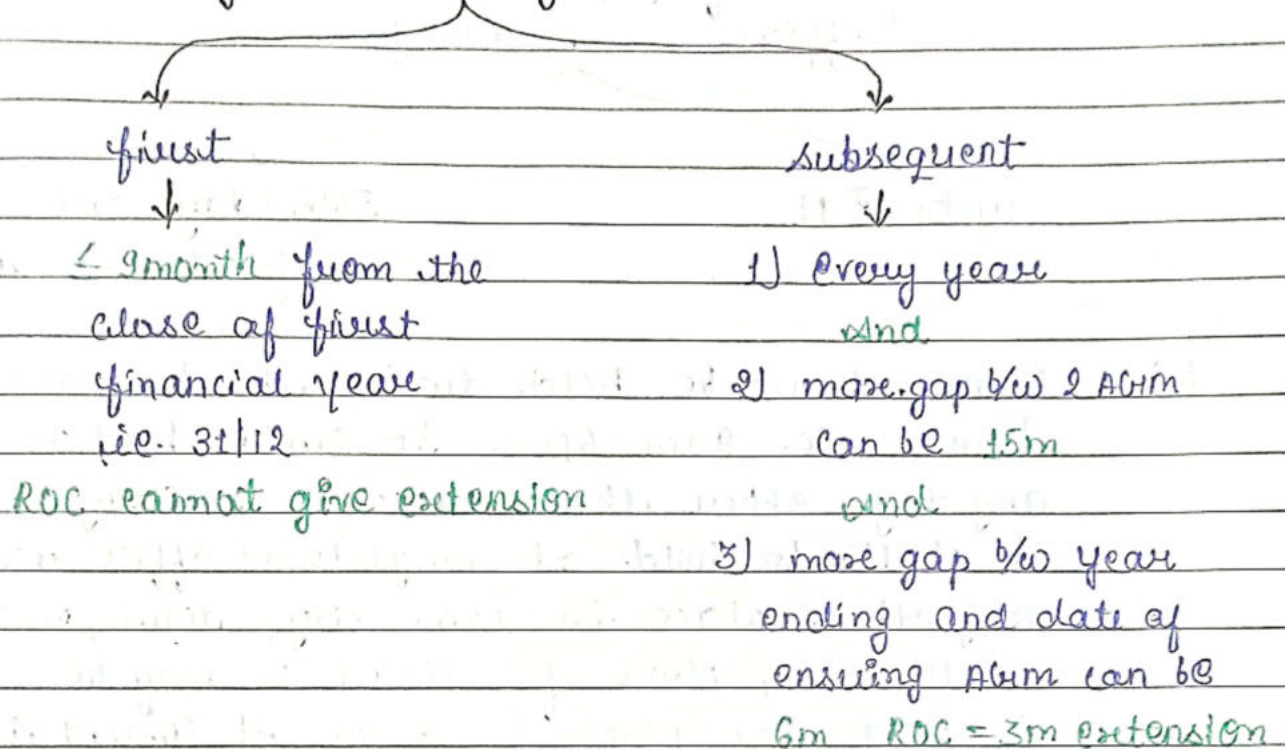 first
≤ 9month from the
close of first
financial year
i.e. 31/12
ROC cannot give extension
subsequent
1) every year
and
2) max. gap b/w 2 AGM
can be 15m
and
3) max gap b/w year
ending and date of
ensuing AGM can be
6m ROC = 3m extension